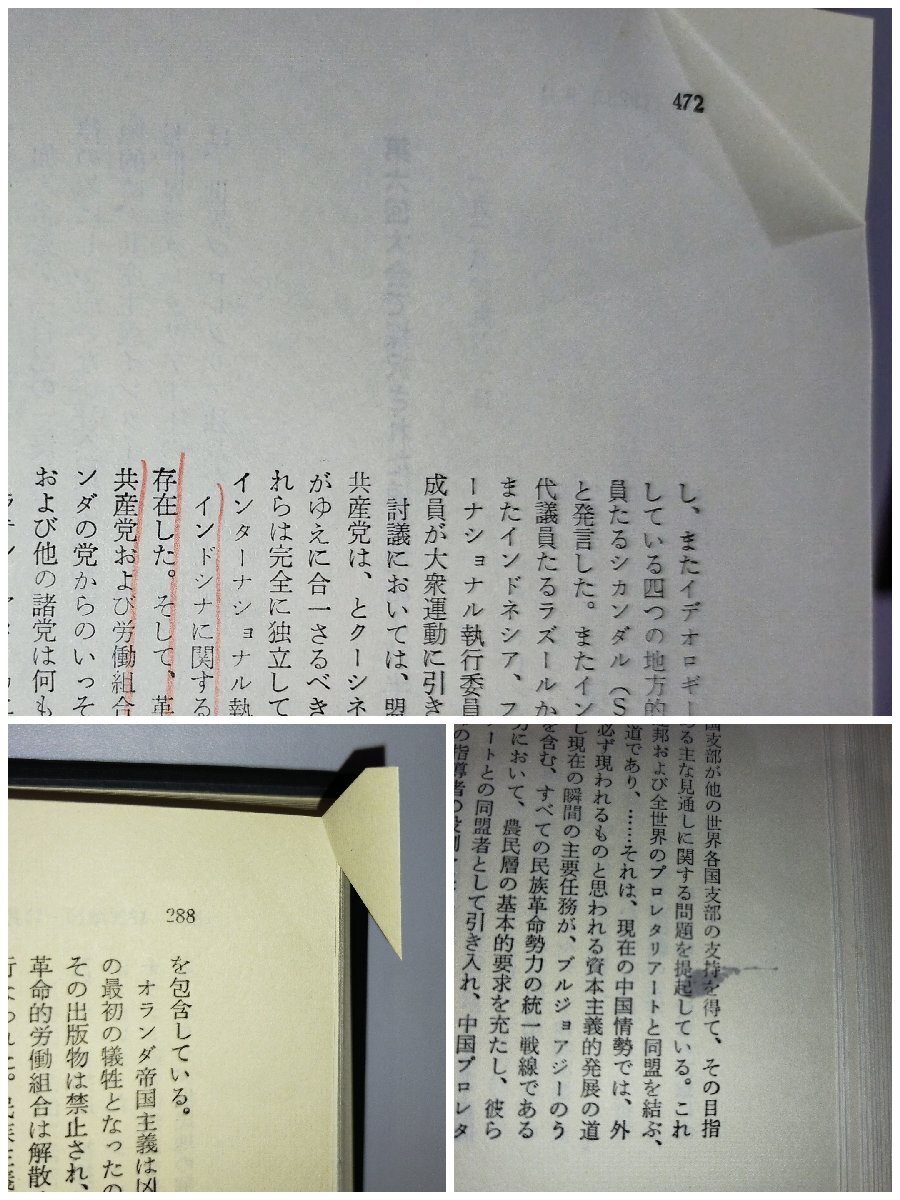 472
し、またイデオロギー
している四つの地方的
員たるシカンダル（S
と発言した。またイン
代議員たるラズールか
またインドネシア、フ
ーナショナル執行委員
成員が大衆運動に引き
討議においては、盟
共産党は、とクーシネ
がゆえに合一さるべき
れらは完全に独立して
インターナショナル執
インドシナに関する
存在した。そして、革
共産党および労働組合
ンダの党からのいっそ
および他の諸党は何も
288
を包含している。
オランダ帝国主義は凶
の最初の犠牲となったの
その出版物は禁止され、
革命的労働組合は解散
行なわれた。民族主義
国支部が他の世界各国支部の支持を得て、その目指
る主な見通しに関する問題を提起している。これ
邦および全世界のプロレタリアートと同盟を結ぶ、
道であり、……それは、現在の中国情勢では、外
必ず現われるものと思われる資本主義的発展の道
し現在の瞬間の主要任務が、ブルジョアジーのう
を含む、すべての民族革命勢力の統一戦線である
において、農民層の基本的要求を充たし、彼ら
ートとの同盟者として引き入れ、中国プロレタ
の指導者の役割